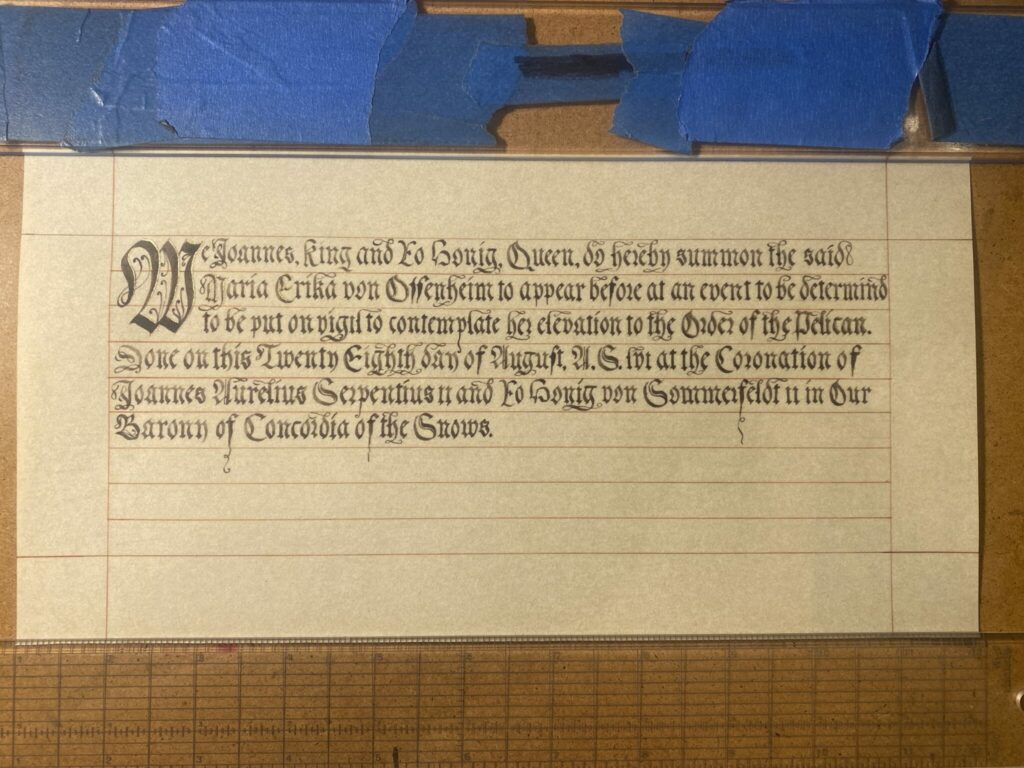 We Joannes, King and Xo Honig, Queen, do hereby summon the said
Maria Erika von Offenheim to appear before at an event to be determind
to be put on vigil to contemplate her elevation to the Order of the Pelican.
Done on this Twenty Eighth day of August, A.S. lvi at the Coronation of
Joannes Aurelius Serpentius II and Xo Honig von Sommerfeldt II in Our
Barony of Concordia of the Snows.